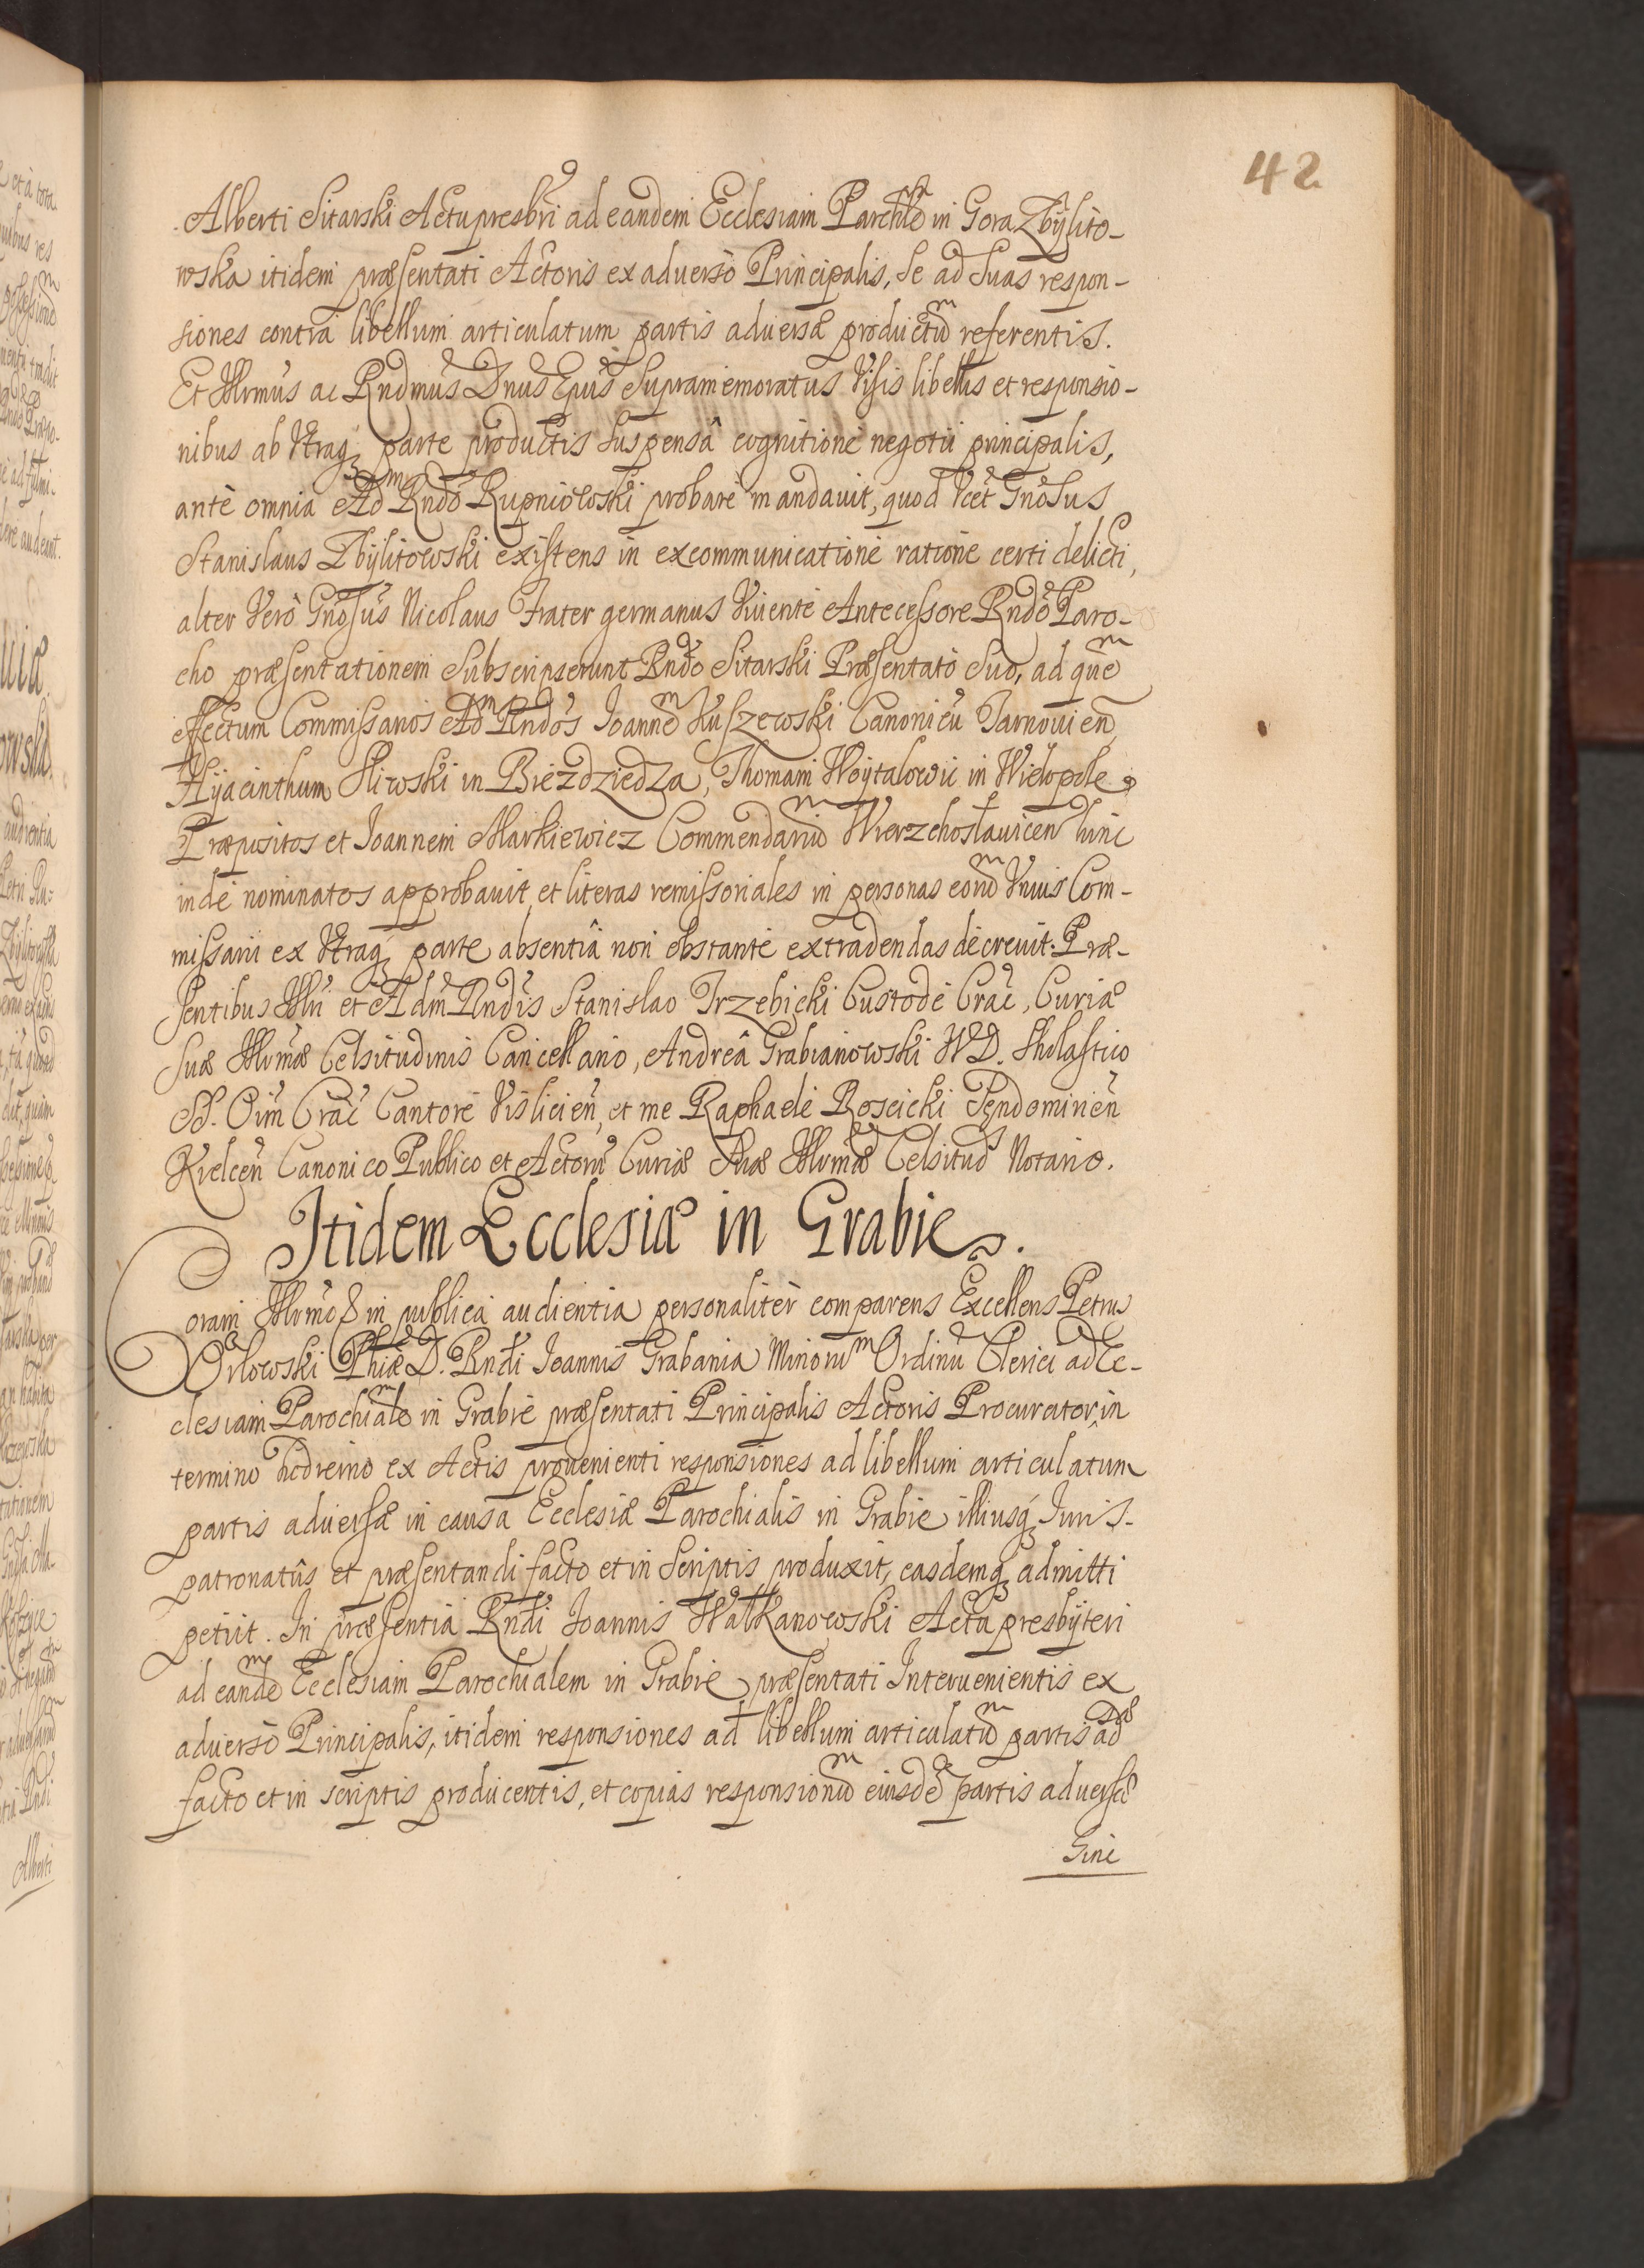 42
Alberti Sitarski Actupresbri ad eandem Ecclesiam Parchlem in Gora Zbÿlito-
wska itidem præsentati Actoris ex aduersò Principalis, se ad suas respon-
siones contra libellum articulatum partis aduersæ productum referentis.
Et Illrmus ac Rndmus Dnus Epus supramemoratus Visis libellis et responsio-
nibus ab Vtraq parte productis suspensâ cognitione negotii principalis,
ante omnia Adm Rndo Rupniowski probare mandauit, quod Vcet Gnosus
Stanislaus Zbÿlitowski existens in excommunicatione ratione certi delicti,
alter Verò Gnosus Nicolaus Frater germanus Viuente Antecessore Rndo Paro-
cho præsentationem subscripserunt Rndo Sitarski Præsentato suo, ad quem
effectum Commissarios Adm Rndos Joannem Kuszewski Canonicu Tarnouien
Hÿacinthum Sliwski in Bieżdziedza, Thomam Woÿtalowic in Wielopole
Præpositos et Joannem Markiewicz Commendarium Wierzchosławicen hinc
inde nominatos approbauit, et literas remissoriales in personas eorum Vnius Com-
missarii ex Vtraq parte absentiâ non obstante extradendas decreuit. Præ-
sentibus Illri et Adm Rndis Stanislao Trzebicki Custode Crac, Curiæ
suæ Illrmæ Celsitudinis Cancellario, Andreâ Grabianowski V D. Sholastico
SS. Oim Crac Cantore Vislicien, et me Raphaele Roscicki Sendomirien
Kielcen Canonico Publico et Actoru Curiæ Suæ Illrmæ Celsitud Notario.
Itidem Ecclesiæ in Grabie.
Coram Illrmo & in publica audientia personaliter comparens Excellens Petrus
Orłowski Phiæ D. Rndi Joannis Grabania Minorum Ordinu Clerici ad Ec-
clesiam Parochialem in Grabie præsentati Principalis Actoris Procurator, in
termino hodierno ex Actis prouenienti responsiones ad libellum articulatum
partis aduersæ in causa Ecclesiæ Parochialis in Grabie illiusq Juris-
patronatûs et præsentandi facto et in scriptis produxit, easdemq admitti
petiit. In præsentia Rndi Joannis Wałkanowski Acta presbÿteri
ad eandem Ecclesiam Parochialem in Grabie præsentati Interuenientis ex
aduersò Principalis, itidem responsiones ad libellum articulatum partis adsæ
facto et in scriptis producentis, et copias responsionum eiusde partis aduersæ